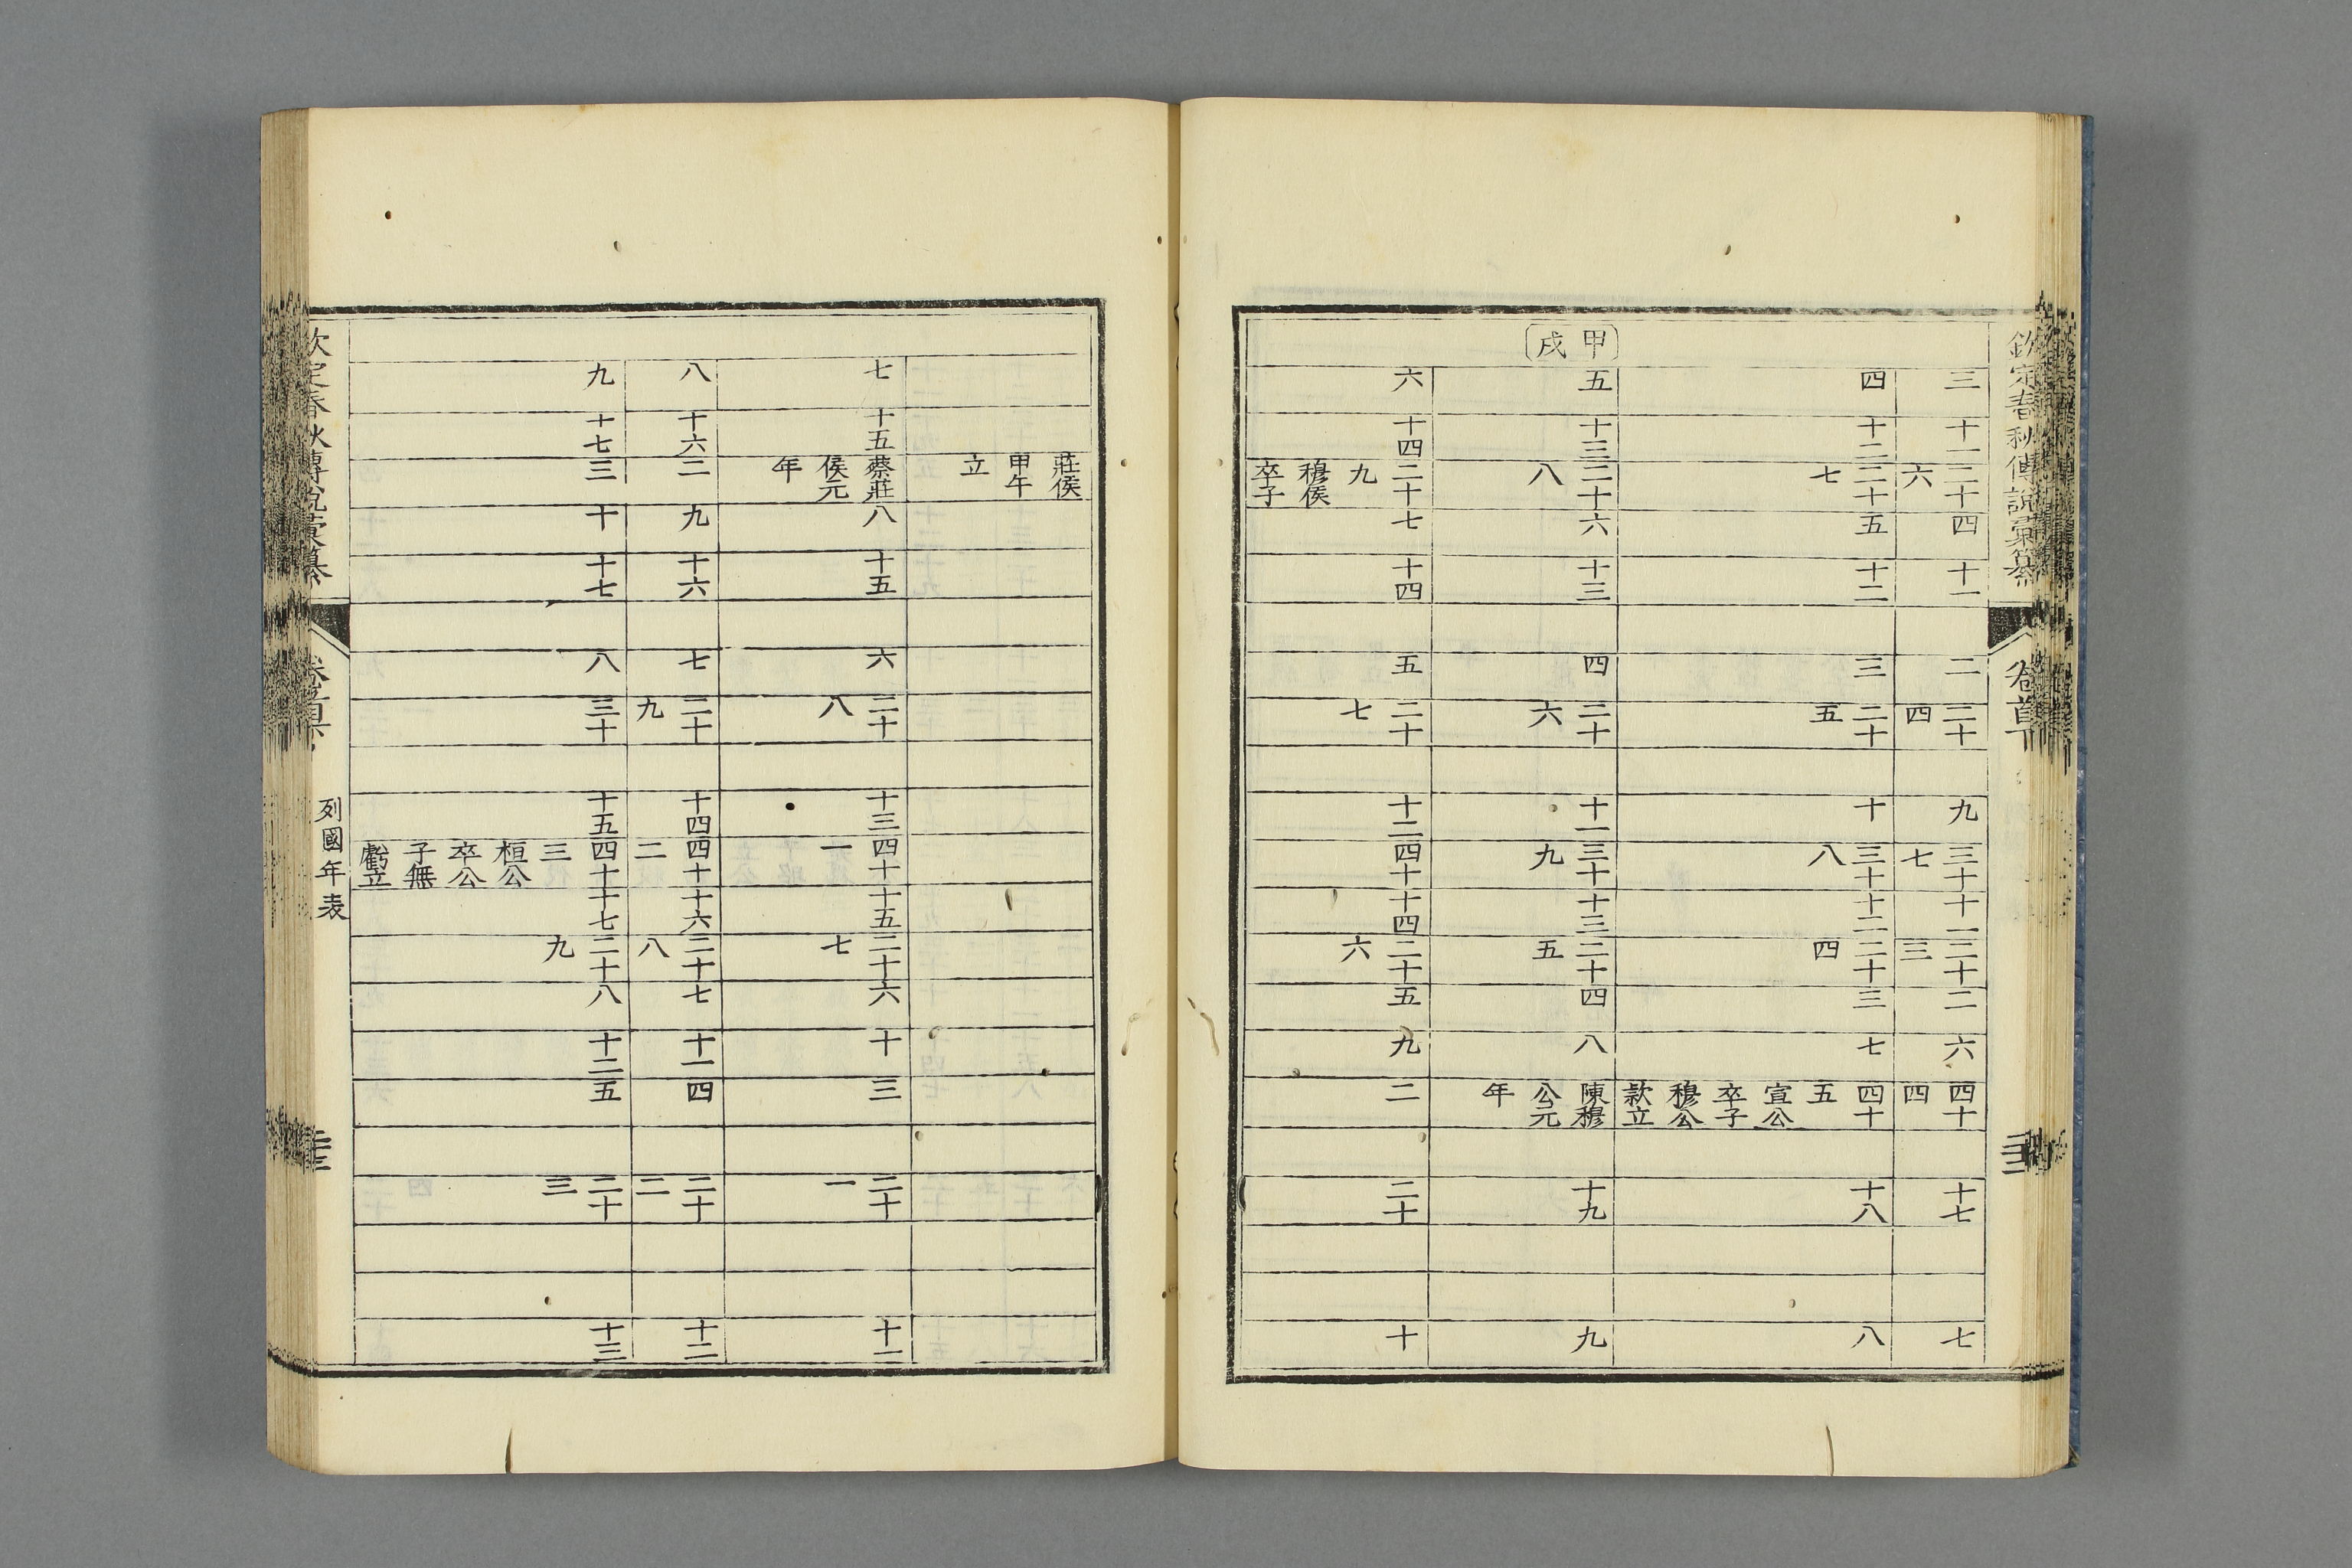 欽定春秋傳說彙纂 卷首下
三 十一 二十 四 十一 二 二十 九 三十 十一 二十 二 六 四十 十七 七
六 四 七 三 四
四 十二 二十 五 十二 三 二十 十 三十 十二 二十 三 七 四十 十八 八
七 五 八 四 五
宣公
卒子
穆公
款立
甲戌
五 十三 二十 六 十三 四 二十 十一 三十 十三 二十 四 八 陳穆 十九 九
八 六 九 五 公元
年
六 十四 二十 七 十四 五 二十 十二 四十 十四 二十 五 九 二 二十 十
九 七 六
穆侯
卒子
莊侯
甲午
立
七 十五 蔡莊 八 十五 六 二十 十三 四十 十五 二十 六 十 三 二十 十一
侯元 八 一 七 一
年
八 十六 二 九 十六 七 二十 十四 四十 十六 二十 七 十一 四 二十 十二
九 二 八 二
九 十七 三 十 十七 八 三十 十五 四十 十七 二十 八 十二 五 二十 十三
三 九 三
桓公
卒公
子無
虧立
欽定春秋傳說彙纂 卷首下 列國年表